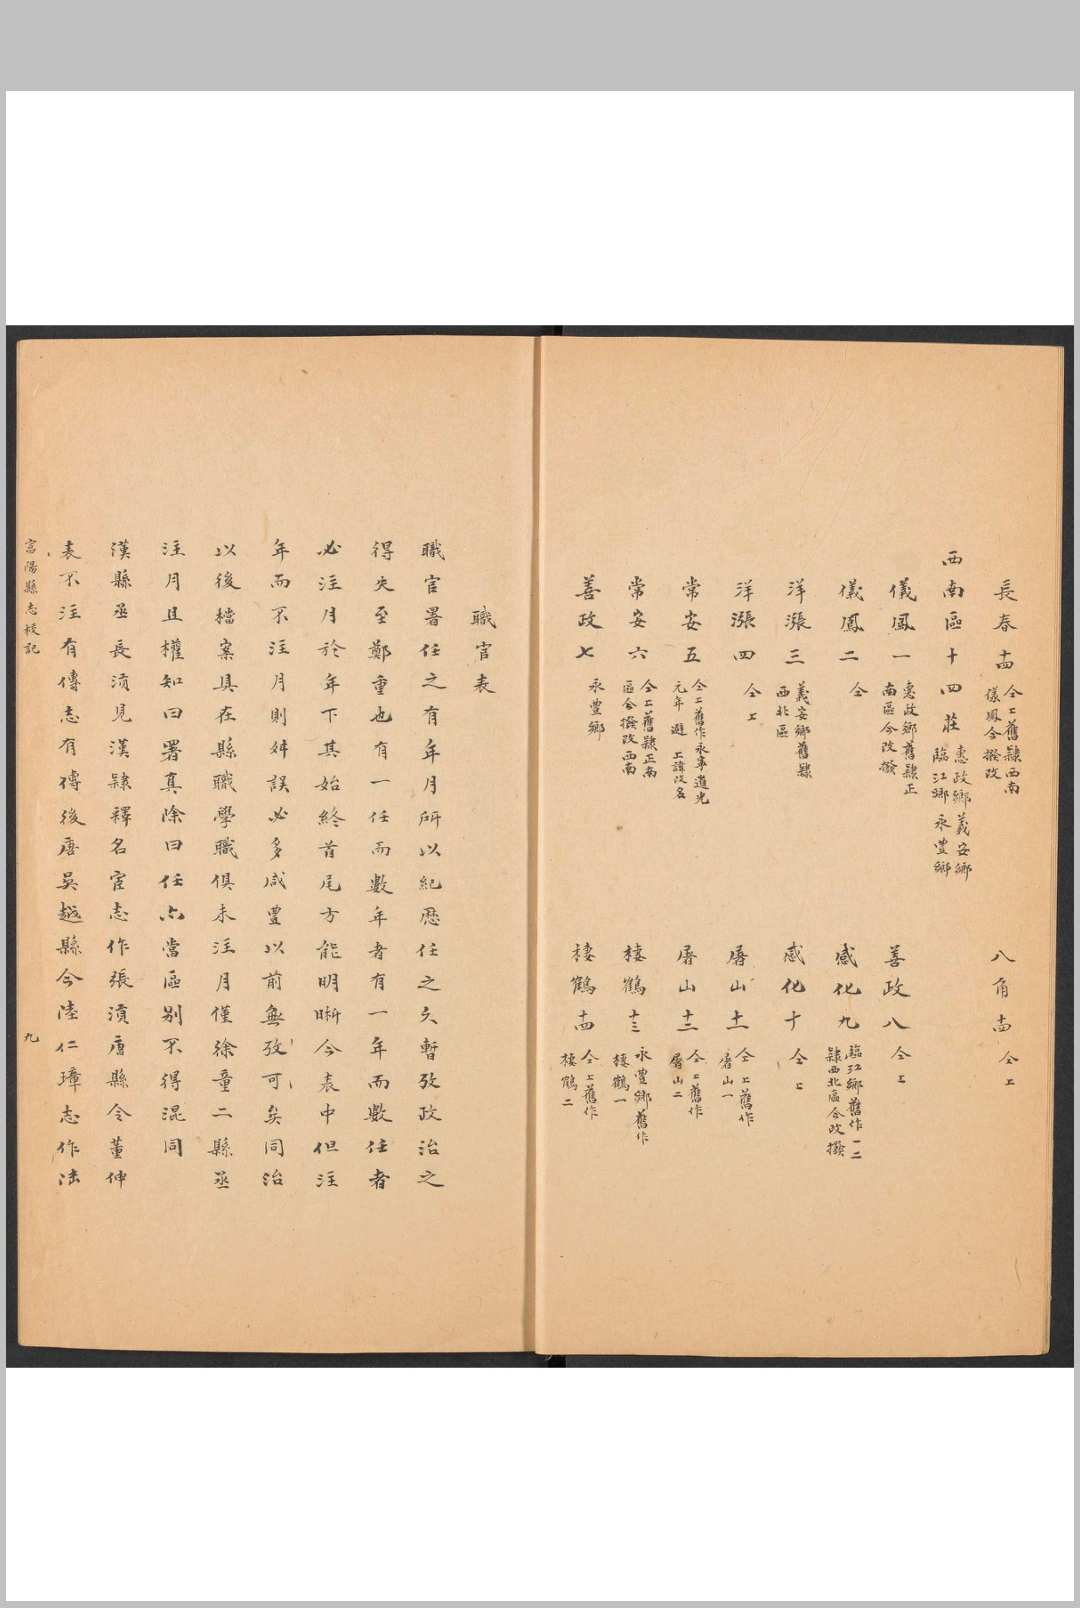 長春十四 仝上舊隸西南
儀鳳今撥改
八角十五 仝上
西南區十四莊 惠政鄉義安鄉
臨江鄉永豐鄉
儀鳳一 惠政鄉舊隸正
南區今改撥
善政八 仝上
儀鳳二 仝
感化九 臨江鄉舊作一二
隸西北區今改撥
洋漲三 義安鄉舊隸
西北區
感化十 仝上
洋漲四 仝上
屠山十一 仝上舊作
屠山一
常安五 仝上舊作永寧道光
元年避上諱改名
屠山十二 仝上舊作
屠山二
常安六 仝上舊隸正南
區今撥改西南
棲鶴十三 永豐鄉舊作
棲鶴一
善政七 永豐鄉
棲鶴十四 仝上舊作
棲鶴二
職官表
職官署任之有年月所以紀歷任之久暫攷政治之
得失至鄭重也有一任而數年者有一年而數任者
必注月於年下其始終首尾方能明晰今表中但注
年而不注月則舛誤必多咸豐以前無攷可矣同治
以後檔案具在縣職學職俱未注月僅徐童二縣丞
注月且權知曰署真除曰任亦當區別不得混同
漢縣丞長湏見漢隸釋名宦志作張湏唐縣令董伸
表不注有傳志有傳後唐吳越縣令陸仁璋志作法
富陽縣志校記
九